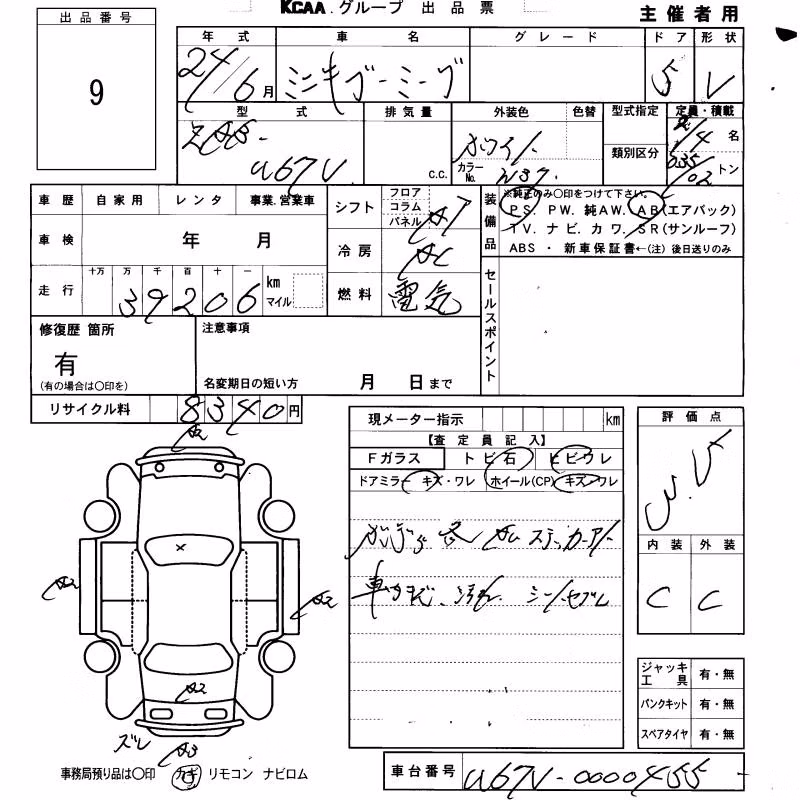 KCAA.グループ 出品票
主催者用
出品番号
9
年式 車名 グレード ドア 形状
24/6月 ミニキャブミーブ 5 V
型式 排気量 外装色 色替 型式指定 定員・積載
ZAB-
U67V c.c. ホワイト
カラーNo. W37
類別区分
2/4名
トン
車歴 自家用 レンタ 事業.営業車
車検 年 月
走行 十万 万 千 百 十 一
39206 km マイル
シフト フロア コラム パネル AT
冷房 AC
燃料 電気
装備品 ※純正のみ〇印をつけて下さい。
PS. PW. 純AW. AB(エアバック)
TV. ナビ. カワ. SR(サンルーフ)
ABS ・ 新車保証書←(注) 後日送りのみ
セールスポイント
修復歴 箇所
有
(有の場合は〇印を)
注意事項
名変期日の短い方 月 日まで
リサイクル料 8340円
現メーター指示 km
【査定員記入】
Fガラス トビ石 ヒビワレ
ドアミラー キズ・ワレ ホイール(CP) キズ・ワレ
ステッカーアト
シートヤブレ
評価点
内装 外装
C C
A2
A2
A2
A2
ズレ
A3
ジャッキ工具 有・無
パンクキット 有・無
スペアタイヤ 有・無
事務局預り品は〇印 カギ リモコン ナビロム
車台番号 U67V-0000455